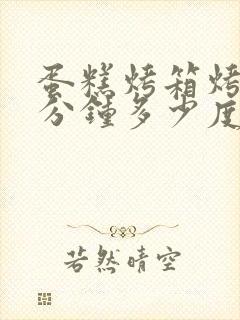 蛋糕烤箱烤
分鐘多少度
若然晴空